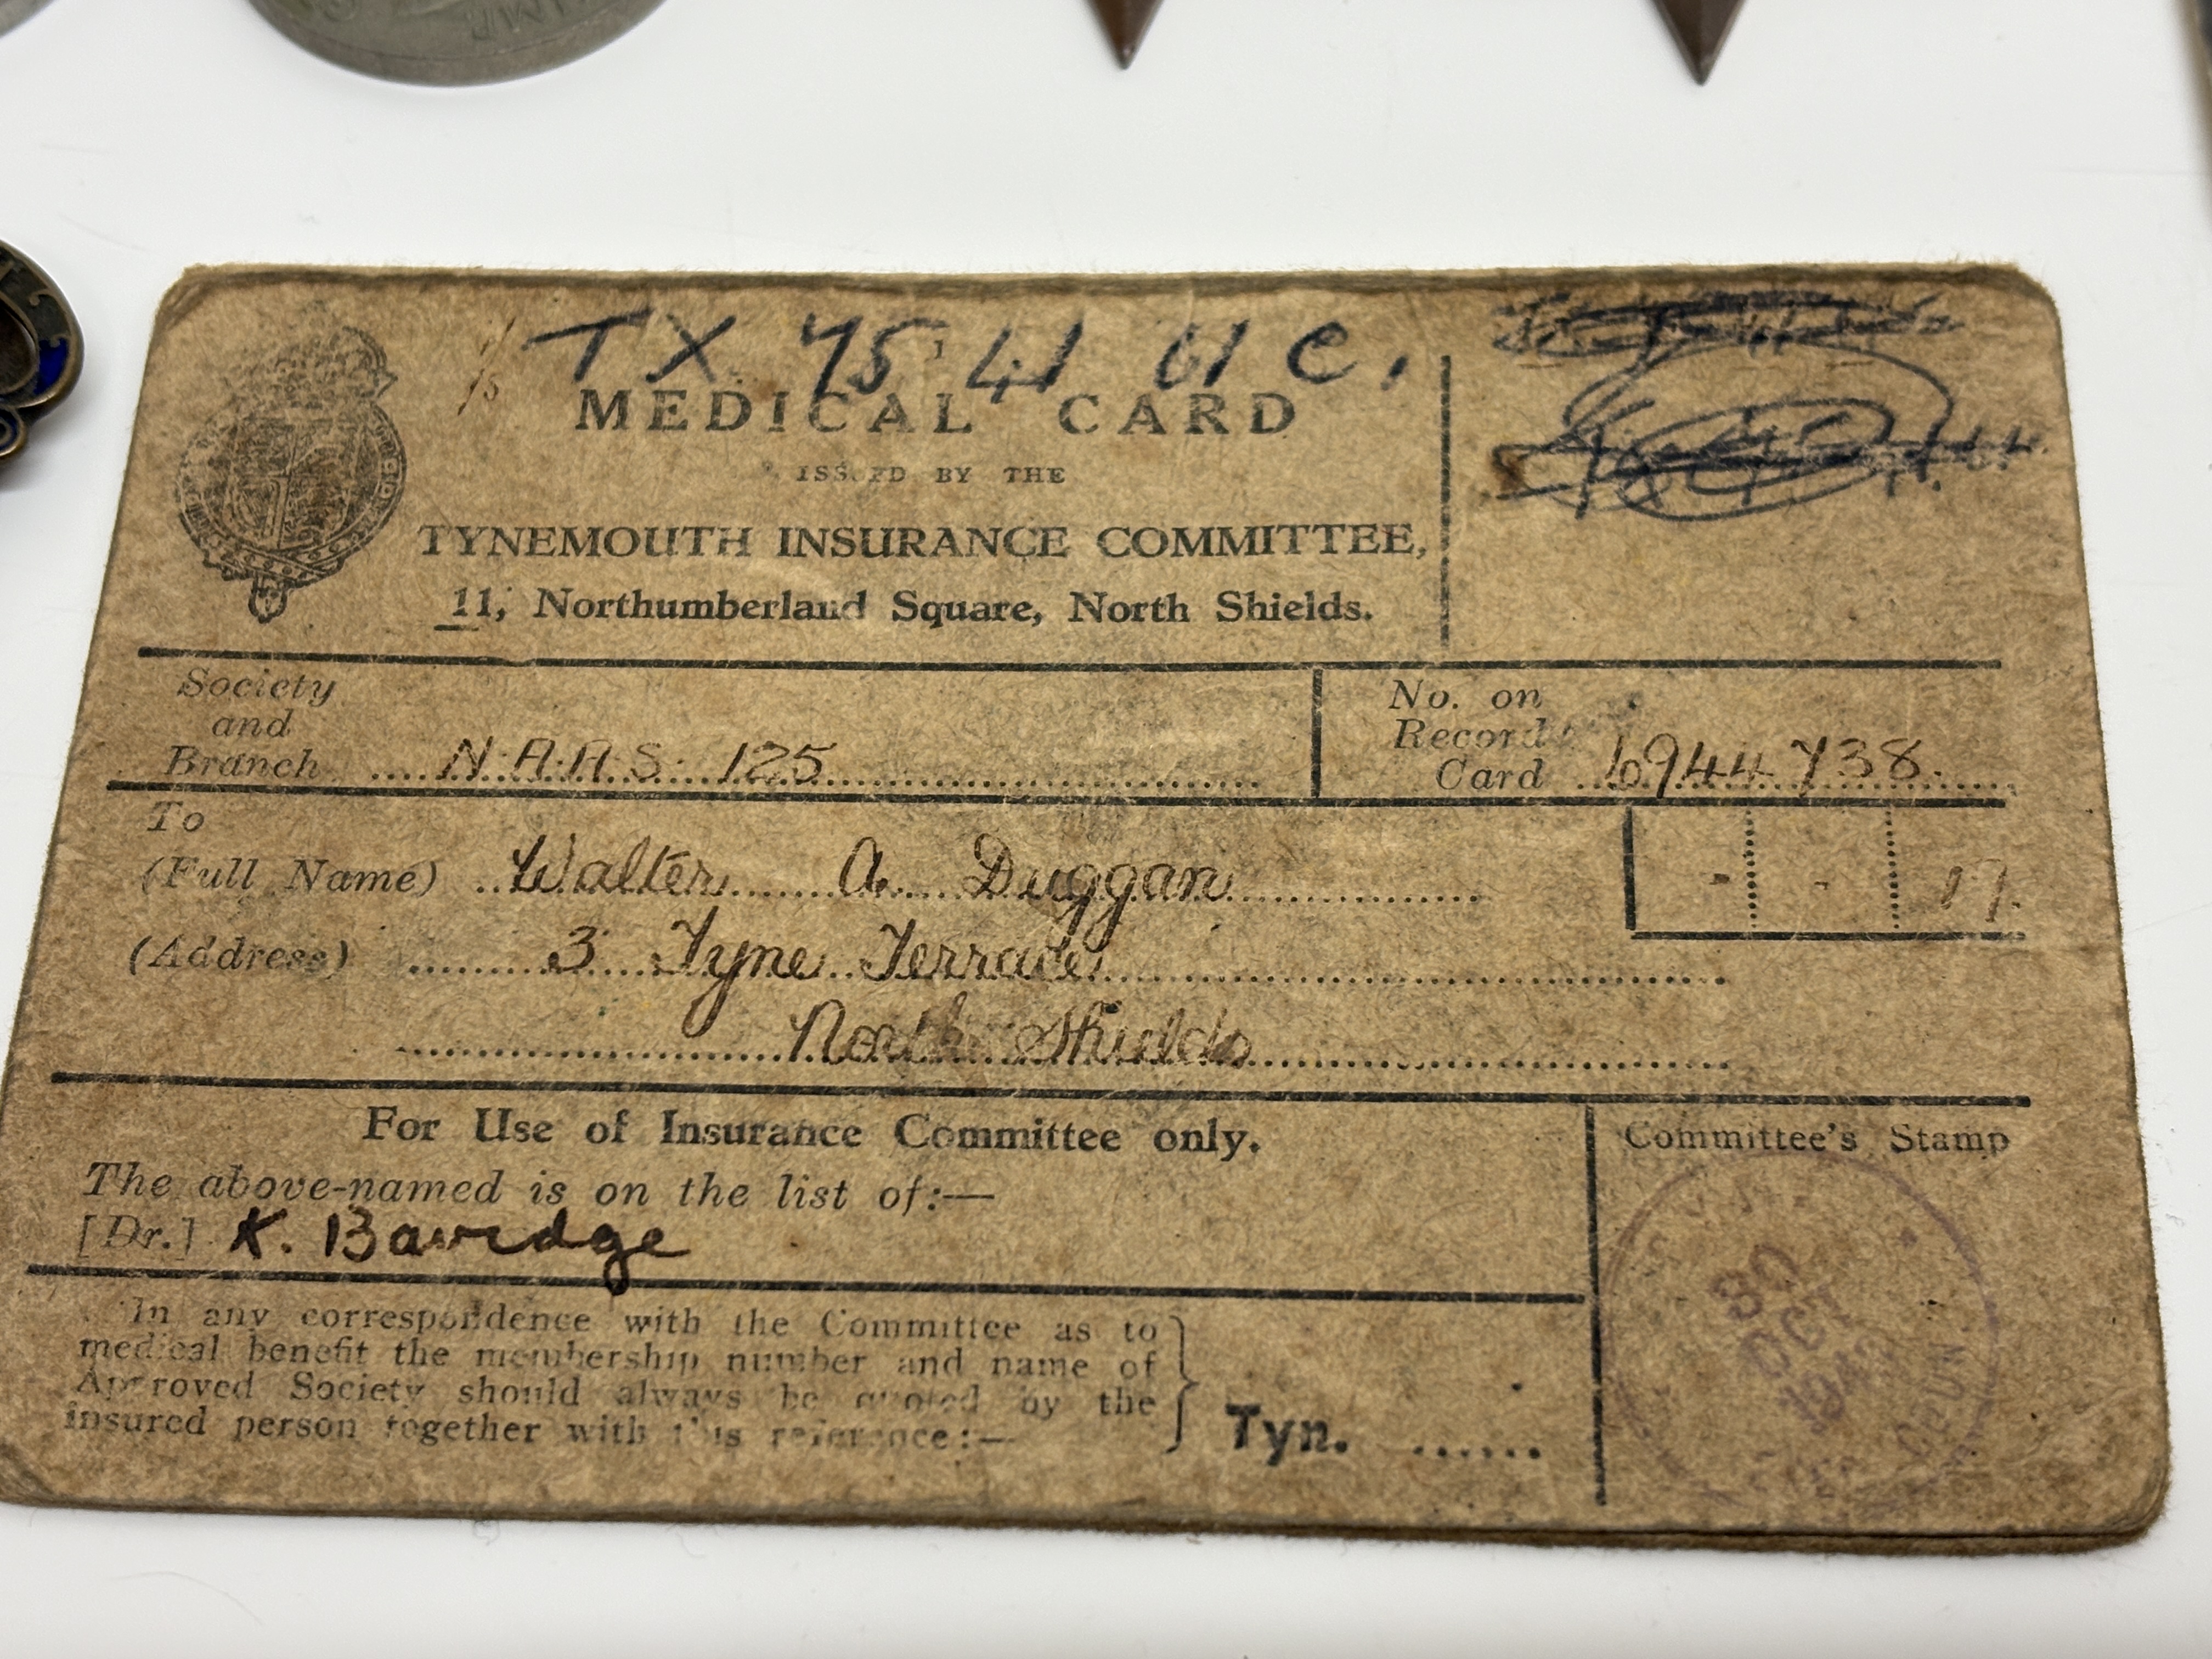 TX 75 41 61 C.
MEDICAL CARD
ISSUED BY THE
TYNEMOUTH INSURANCE COMMITTEE,
11, Northumberland Square, North Shields.
Society
and
Branch N.A.A.S. 125
No. on
Record
Card 6944738.
To
(Full Name) Walter A. Duggan
- - 17.
(Address) 3 Tyne Terrace
North Shields
For Use of Insurance Committee only.
The above-named is on the list of:—
[Dr.] K. Bavidge
Committee's Stamp
30
OCT
In any correspondence with the Committee as to
medical benefit the membership number and name of
Approved Society should always be quoted by the
insured person together with this reference:—
Tyn. ......